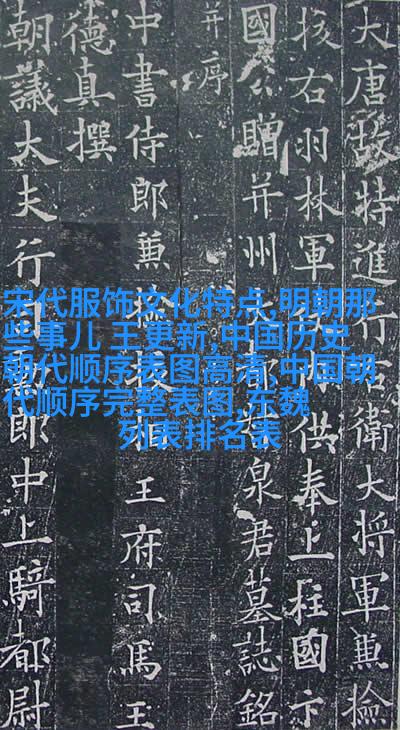 大唐故特進行右衛大將軍兼檢
校右羽林軍內供奉上柱國卞
國公贈并州泉君墓誌銘
并序
中書侍郎兼檢校相王府司馬王
德真撰
朝議大夫行司郎中上騎都尉
宋代服饰文化特点,明朝那
些事儿 王更新,中国历史
朝代顺序表图高清,中国朝
代顺序完整表图,东魏
列表排名表